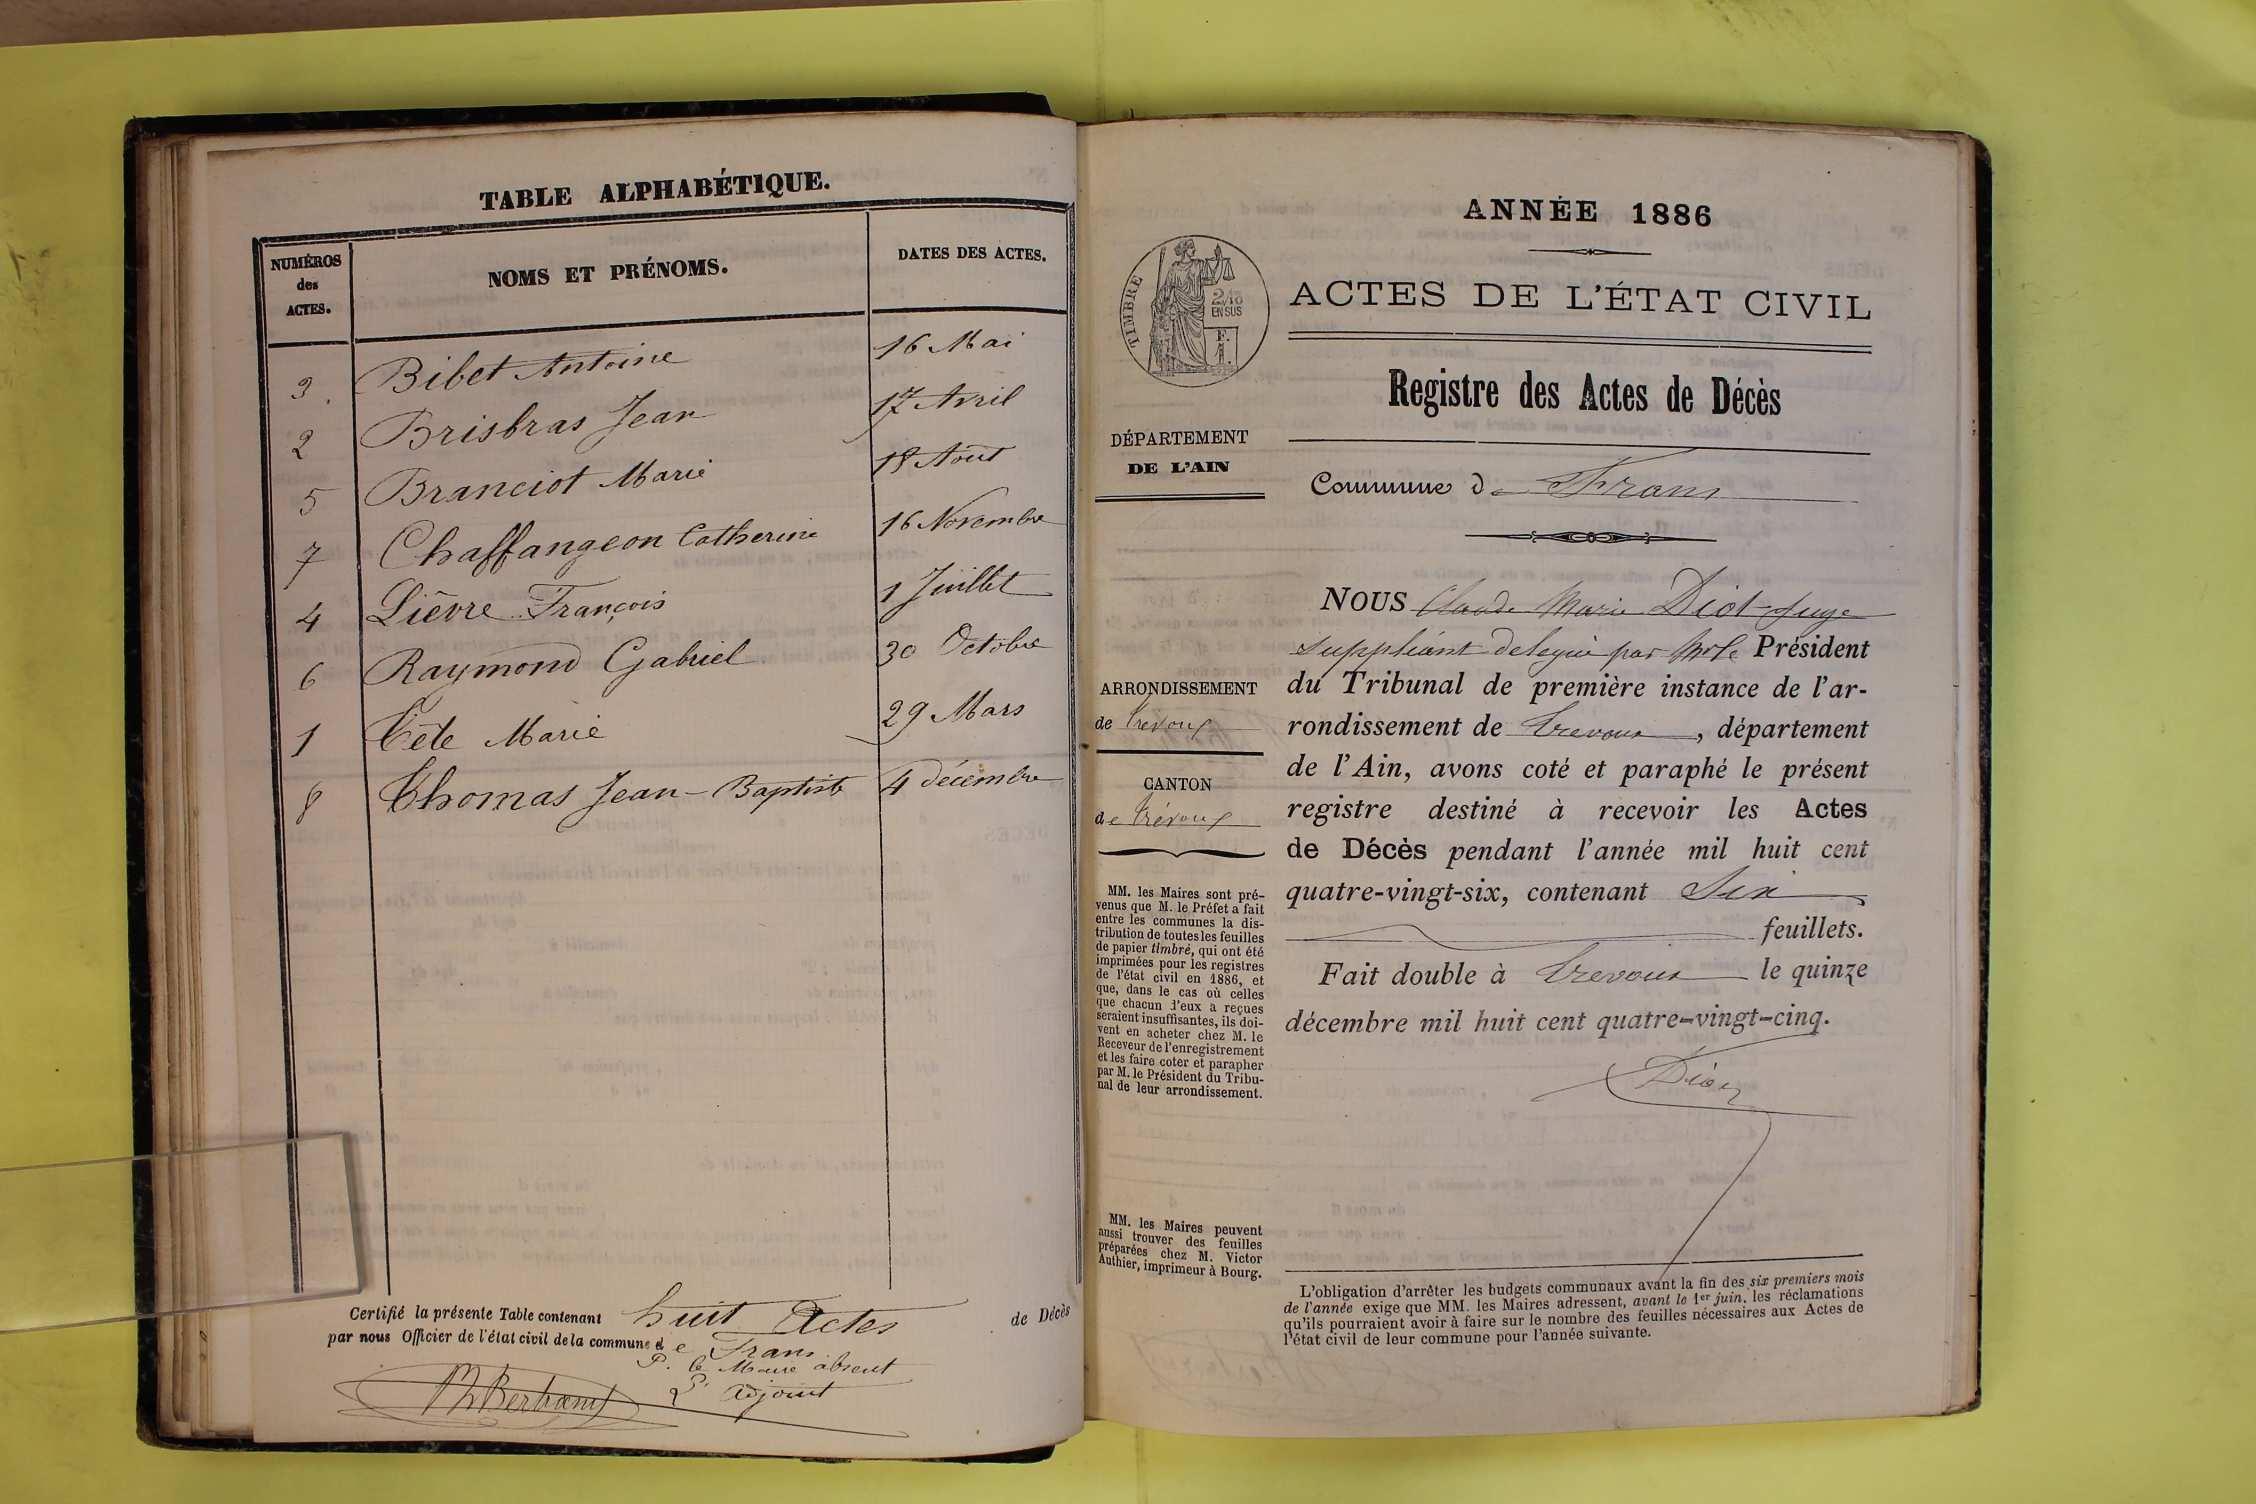 TABLE ALPHABÉTIQUE.
NUMÉROS
des
ACTES.
NOMS ET PRÉNOMS.
DATES DES ACTES.
3 Bibet Antoine 16 Mai
2 Brisbras Jean 17 Avril
5 Branciot Marie 18 Août
7 Chaffangeon Catherine 16 Novembre
4 Lièvre François 1 Juillet
6 Raymond Gabriel 30 Octobre
1 Tête Marie 29 Mars
8 Thomas Jean-Baptiste 4 décembre
Certifié la présente Table contenant huit Actes de Décès
par nous Officier de l'état civil de la commune de Frans
P. le Maire absent
L' adjoint
Bertrand
ANNÉE 1886
TIMBRE
2/10
EN SUS
F.
1.
ACTES DE L'ÉTAT CIVIL
Registre des Actes de Décès
DÉPARTEMENT
DE L'AIN
Commune de Frans
ARRONDISSEMENT
de Trévoux
CANTON
de Trévoux
MM. les Maires sont pré-
venus que M. le Préfet a fait
entre les communes la dis-
tribution de toutes les feuilles
de papier timbré, qui ont été
imprimées pour les registres
de l'état civil en 1886, et
que, dans le cas où celles
que chacun d'eux a reçues
seraient insuffisantes, ils doi-
vent en acheter chez M. le
Receveur de l'enregistrement
et les faire coter et parapher
par M. le Président du Tribu-
nal de leur arrondissement.
MM. les Maires peuvent
aussi trouver des feuilles
préparées chez M. Victor
Authier, imprimeur à Bourg.
NOUS Claude Marie Diot Juge
suppléant délégué par Mr le Président
du Tribunal de première instance de l'ar-
rondissement de Trevoux, département
de l'Ain, avons coté et paraphé le présent
registre destiné à recevoir les Actes
de Décès pendant l'année mil huit cent
quatre-vingt-six, contenant Six
feuillets.
Fait double à Trevoux le quinze
décembre mil huit cent quatre-vingt-cinq.
Diot
L'obligation d'arrêter les budgets communaux avant la fin des six premiers mois
de l'année exige que MM. les Maires adressent, avant le 1er juin, les réclamations
qu'ils pourraient avoir à faire sur le nombre des feuilles nécessaires aux Actes de
l'état civil de leur commune pour l'année suivante.